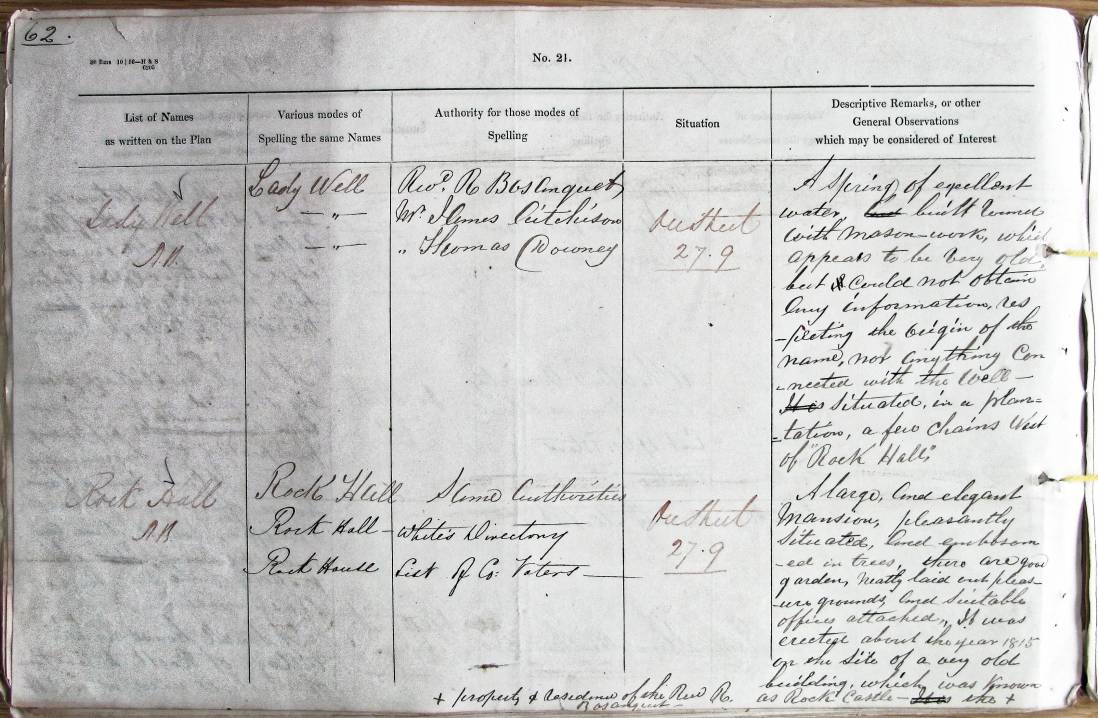 62.
No. 21.
List of Names
as written on the Plan
Various modes of
Spelling the same Names
Authority for those modes of
Spelling
Situation
Descriptive Remarks, or other
General Observations
which may be considered of Interest
Lady Well
Lady Well
— " —
— " —
Revd. R Bosanquet
Mr. James Aitchison
" Thomas Downey
Sheet
27.9
A Spring of excellent
water, built round
with Mason-work, which
appears to be very old,
but I could not obtain
any information, res
-pecting the Origin of the
name, nor anything Con
-nected with the Well —
It is Situated, in a plan=
=tation, a few Chains West
of "Rock Hall"
Rock Hall
Rock Hall
Rock Hall —
Rock House
Same Authorities
White's Directory
List of Co: Voters —
Sheet
27.9
A large, and elegant
Mansion, pleasantly
Situated, and embosom
-ed in trees, there are good
garden, Neatly laid out pleas-
-ure grounds, and Suitable
offices attached, It was
erected about the year 1815
on the Site of a very old
building, which was Known
as Rock Castle — It is the +
+ property & residence of the Rev R.
Bosanquet —